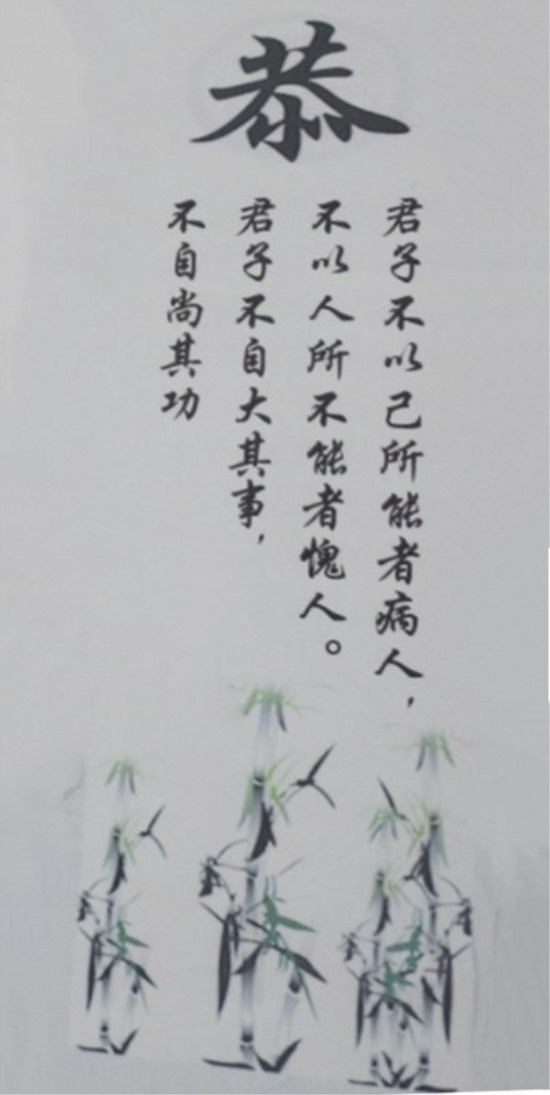 恭
君子不以己所能者病人，
不以人所不能者愧人。
君子不自大其事，
不自尚其功